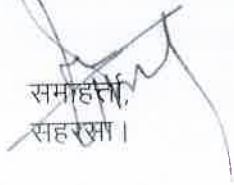 समाहर्त्ता,
सहरसा।